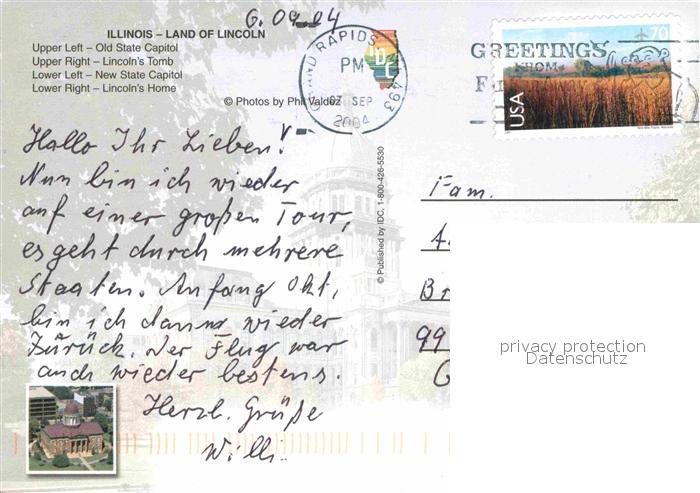 6.09.04
ILLINOIS – LAND OF LINCOLN
Upper Left – Old State Capitol
Upper Right – Lincoln's Tomb
Lower Left – New State Capitol
Lower Right – Lincoln's Home
© Photos by Phil Valdez
GRAND RAPIDS
PM
07 SEP
2004
493
IDC
GREETINGS
FROM
70
USA
Hallo Ihr Lieben!
Nun bin ich wieder
auf einer großen Tour,
es geht durch mehrere
Staaten. Anfang Okt,
bin ich dann wieder
Zurück. Der Flug war
auch wieder bestens.
Herzl. Grüße
Willi.
© Published by IDC, 1-800-426-5530
Fam.
Br
99
privacy protection
Datenschutz